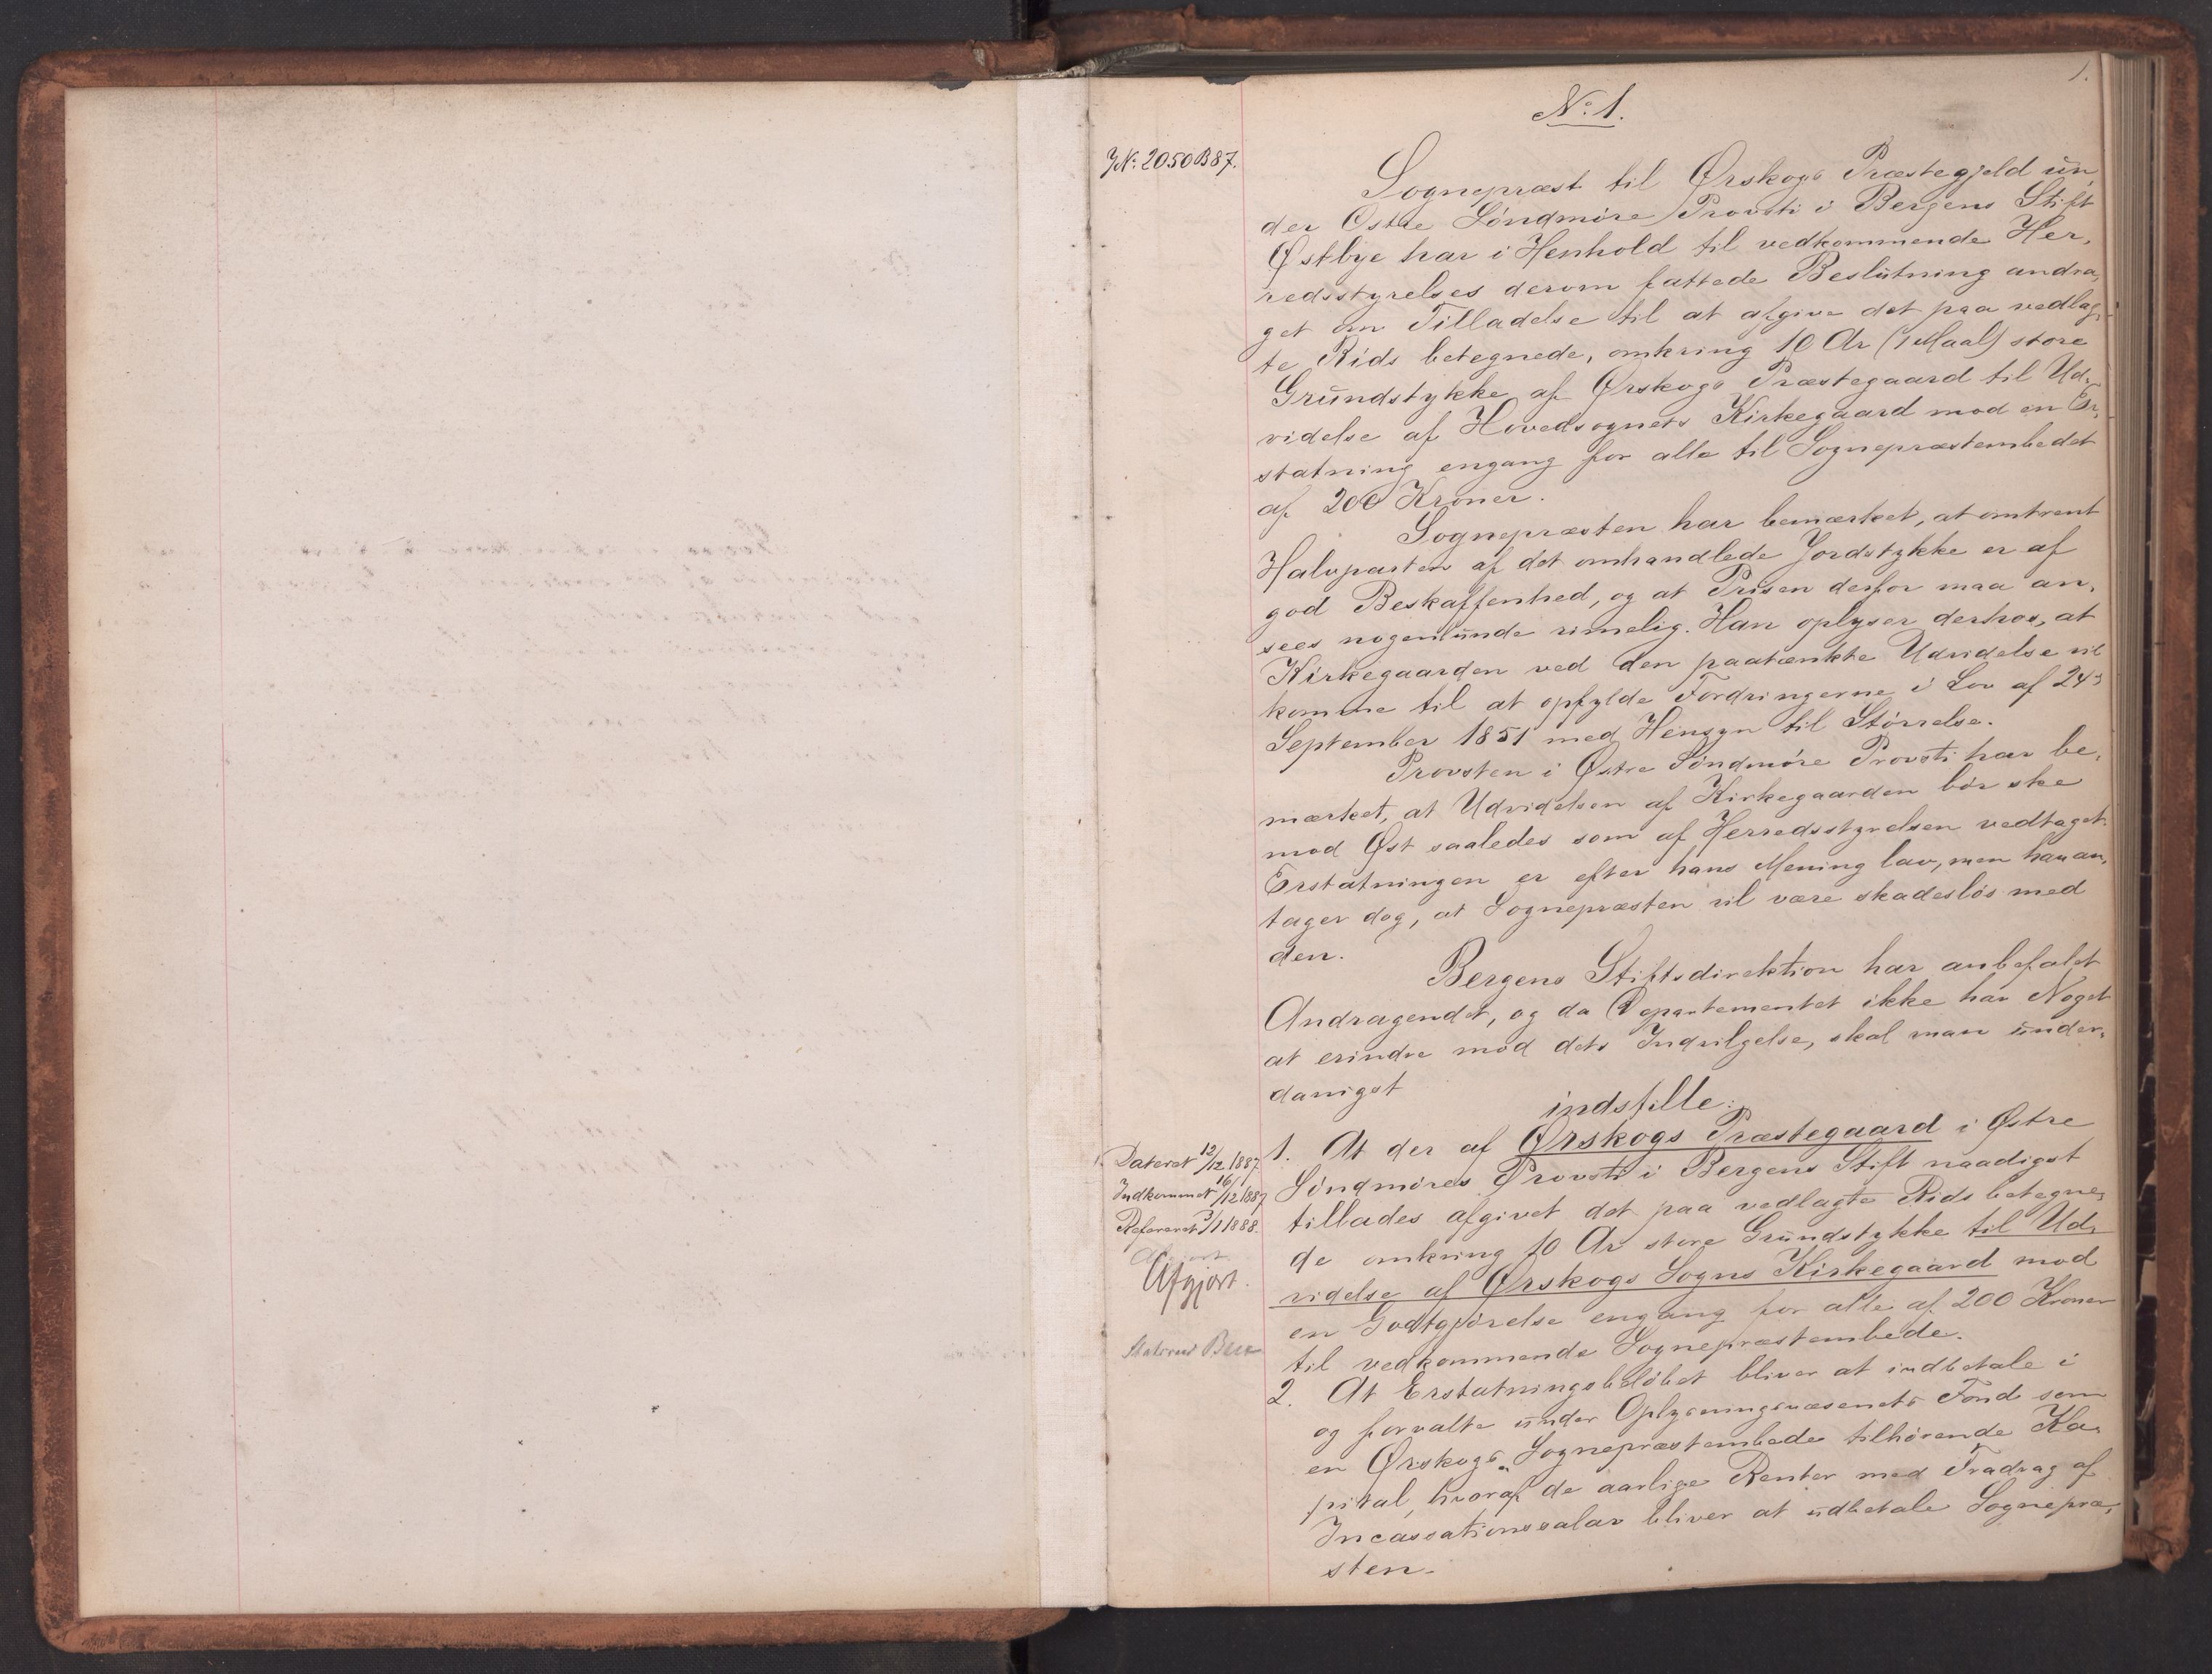 1.
No. 1.
JN: 2050 B 87.
Sognepræst til Ørskogs Præstegjeld un,
der Østre Söndmöre Provsti i Bergens Stift
Østbye har i Henhold til vedkommende Her,
redsstyrelses derom fattede Beslutning andra,
get om Tilladelse til at afgive det paa vedlag,
te Rids betegnede, omkring 10 Ar (1 Maal) store
Grundstykke af Ørskogs Præstegaard til Ud,
videlse af Hovedsognets Kirkegaard mod en Er,
statning engang for alle til Sognepræstembedet
af 200 Kroner.
Sognepræsten har bemærket, at omtrent
Halvparten af det omhandlede Jordstykke er af
god Beskaffenhed, og at Prisen derfor maa an,
sees nogenlunde rimelig. Han oplyser derhos, at
Kirkegaarden ved den paatænkte Udvidelse vil
komme til at opfylde Fordringerne i Lov af 24de
September 1851 med Hensyn til Störrelse.
Provsten i Østre Söndmöre Provsti har be,
mærket, at Udvidelsen af Kirkegaarden bör ske
mod Øst saaledes som af Herredsstyrelsen vedtaget.
Erstatningen er efter hans Mening lav, men han an,
tager dog, at Sognepræsten vil være skadeslös med
den.
Bergens Stiftsdirektion har anbefalet
Andragendet, og da Departementet ikke har Noget
at erindre mod dets Indvilgelse, skal man under,
danigst
indstille:
1. At der af Ørskogs Præstegaard i Østre
Söndmöres Provsti i Bergens Stift naadigst
tillades afgivet det paa vedlagte Rids betegne,
de omkring 10 Ar store Grundstykke til Ud,
videlse af Ørskogs Sogns Kirkegaard mod
en Godtgjörelse engang for alle af 200 Kroner
til vedkommende Sognepræstembede.
2. At Erstatningsbelöbet bliver at indbetale i
og forvalte under Oplysningsvæsenets Fond som
en Ørskogs Sognepræstembede tilhörende Ka,
pital, hvoraf de aarlige Renter med Fradrag af
Incassationssalar bliver at udbetale Sognepræ,
sten.
Dateret 12/12 1887.
Indkommet 16/12 1887
Refereret 3/1 1888.
Afgjort
Afgjort.